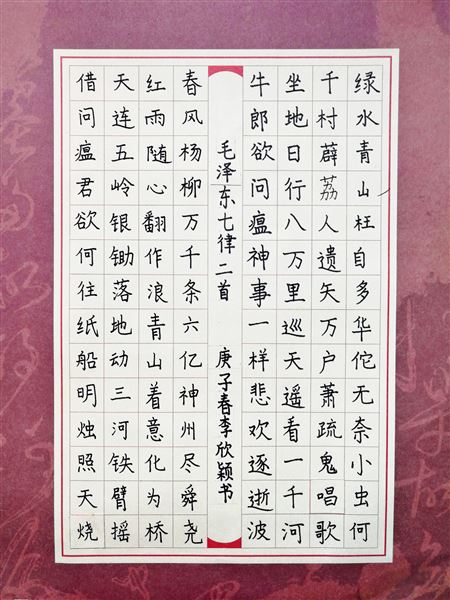 绿水青山枉自多华佗无奈小虫何
千村薜荔人遗矢万户萧疏鬼唱歌
坐地日行八万里巡天遥看一千河
牛郎欲问瘟神事一样悲欢逐逝波
毛泽东七律二首 庚子春李欣颖书
春风杨柳万千条六亿神州尽舜尧
红雨随心翻作浪青山着意化为桥
天连五岭银锄落地动三河铁臂摇
借问瘟君欲何往纸船明烛照天烧